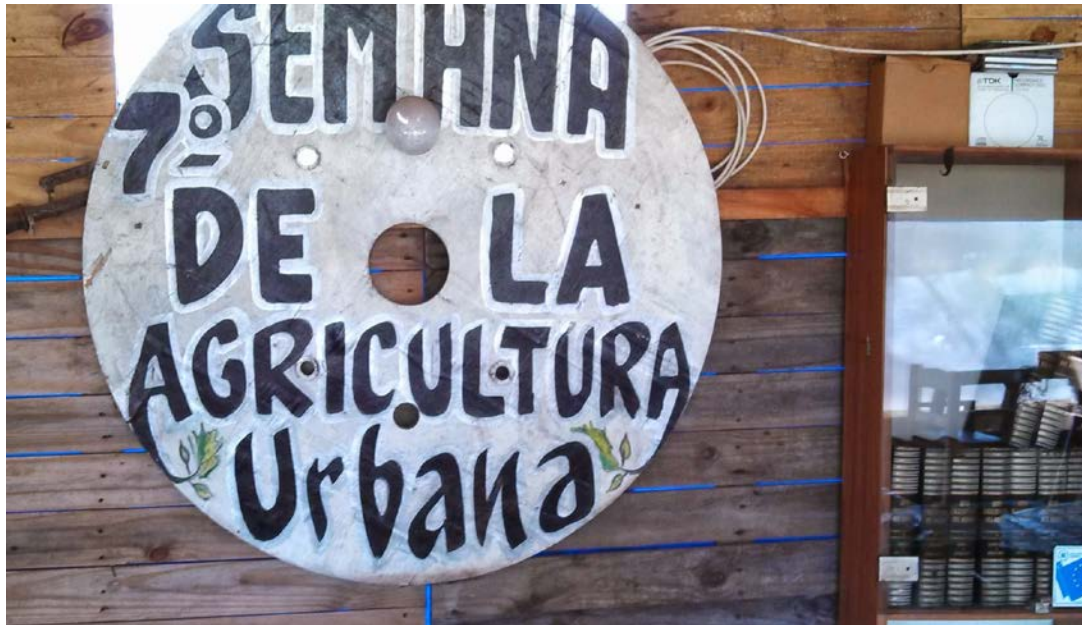 SEMANA
7º
DE LA
AGRICULTURA
Urbana
TDK